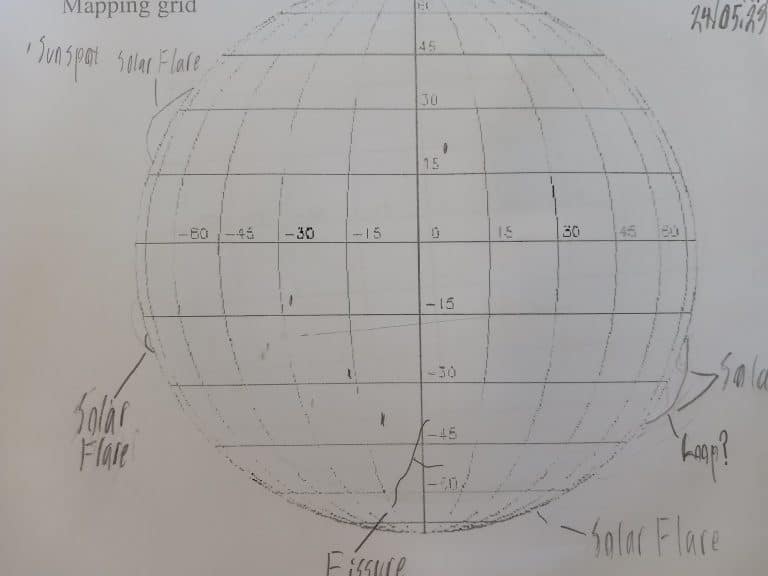 Mapping grid
24/05.23
Sunspot Solar Flare
45
30
15
-60 -45 -30 -15 0 15 30 45 60
-15
-30
-45
-60
Solar
Flare
Loop?
Solar Flare
Fissure